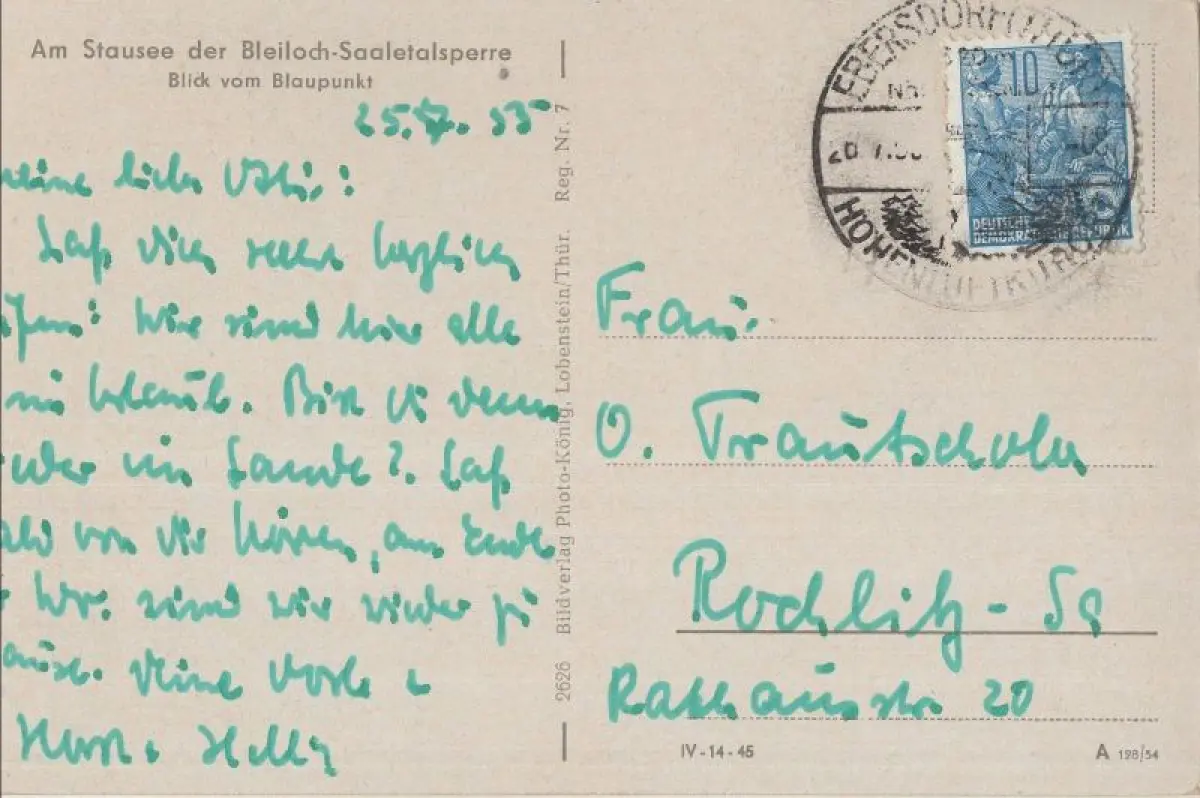 Am Stausee der Bleiloch-Saaletalsperre
Blick vom Blaupunkt
25.7.55
meine liebe
Laß Dich recht herzlich
Wir sind hier alle
im Urlaub. Bist Du denn
wieder im Lande? Laß
bald von Dir hören, am Ende
d. Wo. sind wir wieder zu
Hause. Deine
Horst. Helly
Bildverlag Photo-König, Lobenstein/Thür. Reg. Nr. 7
2626
EBERSDORF (THÜR)
HÖHENLUFTKURORT
10
DEUTSCHE
DEMOKRATISCHE REPUBLIK
Frau
O. Trautschold
Rochlitz - Sa
Rathausstr. 20
IV-14-45
A 198/54